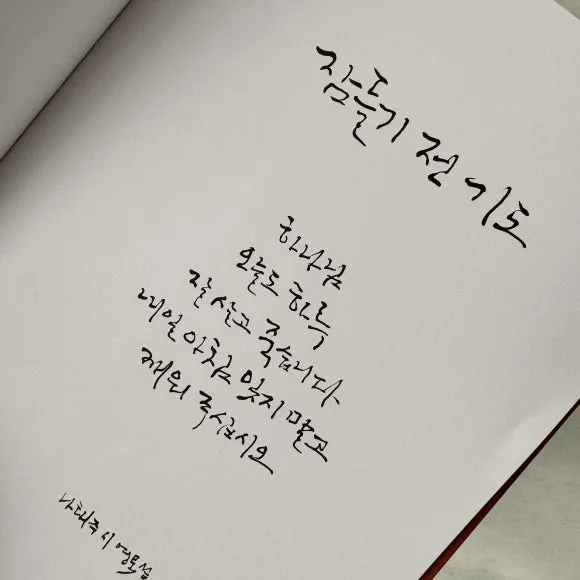 잠들기 전 기도
하나님
오늘도 하루
잘 살고 죽습니다
내일 아침 잊지 말고
깨워 주십시오
나태주 시